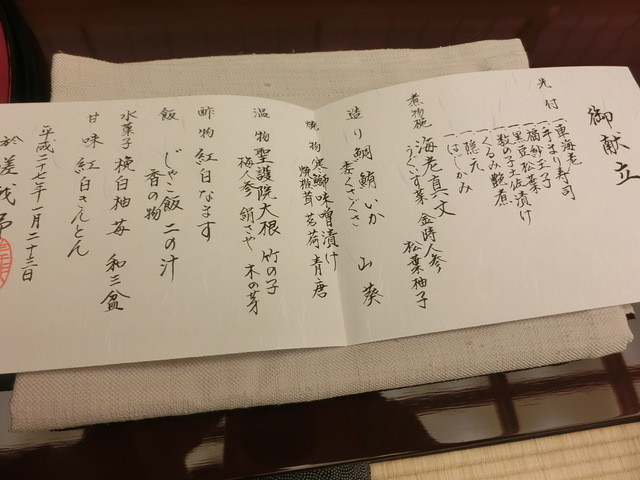 御献立
先付
一車海老
一手まり寿司
一福紗玉子
一黒豆松葉
一数の子土佐漬け
一くるみ艶煮
一隠元
一はじかみ
煮物椀 海老真丈
うぐいす菜 金時人参
松葉柚子
造り 鯛 鮪 いか 山葵
焼物 寒鰤味噌漬け
焼椎茸 茗荷 青唐
温物 聖護院大根 竹の子
梅人参 絹さや 木の芽
酢物 紅白なます
飯 じゃこ飯 二の汁
香の物
水菓子 桃白柚苺 和三盆
甘味 紅白きんとん
平成二十七年一月二十三日
於